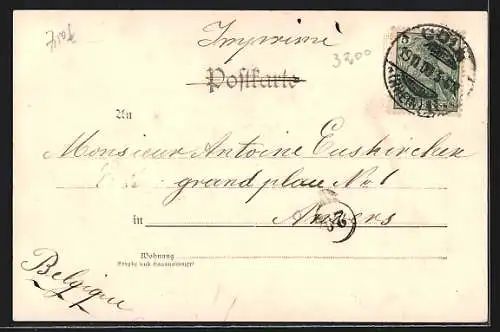 Imprimé
3200
Postkarte
An
Monsieur Antoine Euskirchen
grand place No 1
in Anvers
Wohnung
(Straße und Hausnummer)
Belgique
CÖLN